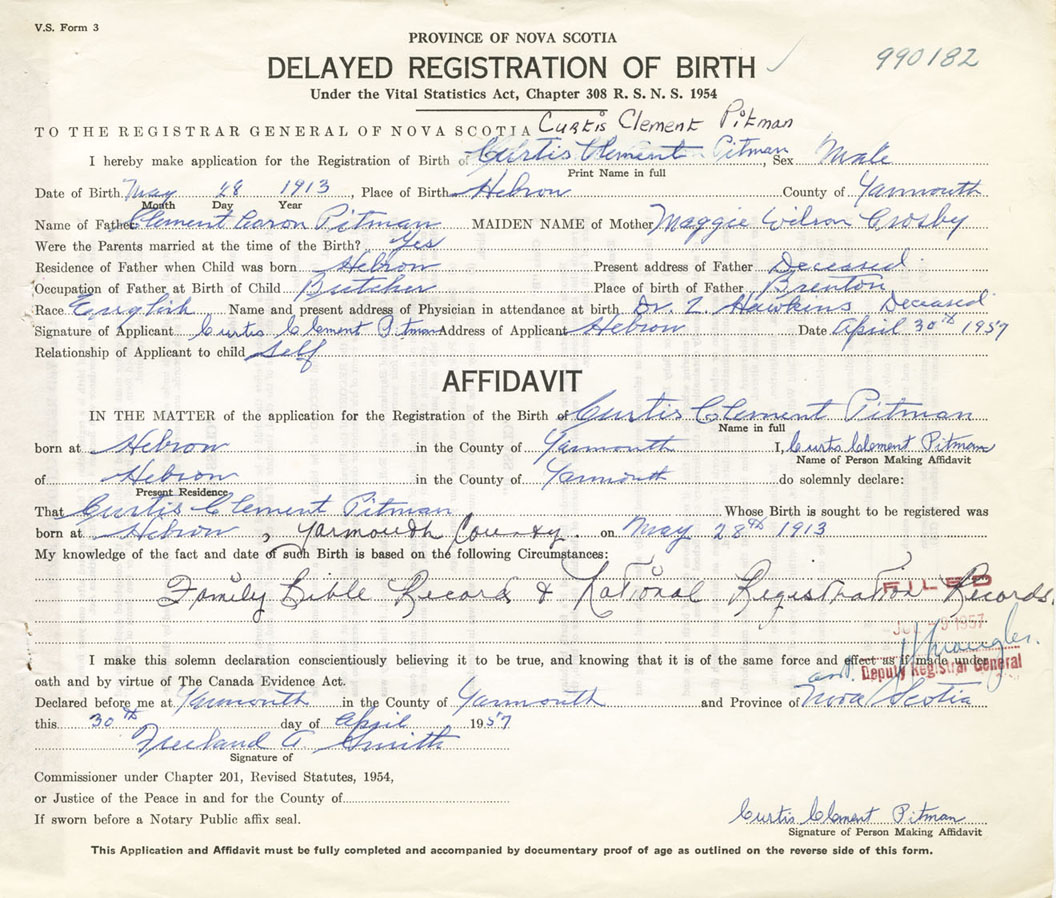 V.S. Form 3
PROVINCE OF NOVA SCOTIA
DELAYED REGISTRATION OF BIRTH
990182
Under the Vital Statistics Act, Chapter 308 R. S. N. S. 1954
TO THE REGISTRAR GENERAL OF NOVA SCOTIA Curtis Clement Pitman
I hereby make application for the Registration of Birth of Curtis Clement Pitman, Sex Male
Print Name in full
Date of Birth May 28 1913, Place of Birth Hebron County of Yarmouth
Month Day Year
Name of Father Clement Aaron Pitman MAIDEN NAME of Mother Maggie Wilson Crosby
Were the Parents married at the time of the Birth? Yes
Residence of Father when Child was born Hebron Present address of Father Deceased
Occupation of Father at Birth of Child Butcher Place of birth of Father Brenton
Race English Name and present address of Physician in attendance at birth Dr. Z. Hawkins Deceased
Signature of Applicant Curtis Clement Pitman Address of Applicant Hebron Date April 30th 1957
Relationship of Applicant to child Self
AFFIDAVIT
IN THE MATTER of the application for the Registration of the Birth of Curtis Clement Pitman
Name in full
born at Hebron in the County of Yarmouth I, Curtis Clement Pitman
Name of Person Making Affidavit
of Hebron in the County of Yarmouth do solemnly declare:
Present Residence
That Curtis Clement Pitman Whose Birth is sought to be registered was
born at Hebron, Yarmouth County. on May 28th 1913
My knowledge of the fact and date of such Birth is based on the following Circumstances:
Family Bible Record & National Registration Records.
FILED
1957
I make this solemn declaration conscientiously believing it to be true, and knowing that it is of the same force and effect as if made under
Deputy Registrar General
oath and by virtue of The Canada Evidence Act.
Declared before me at Yarmouth in the County of Yarmouth and Province of Nova Scotia
this 30th day of April 1957
Freeland A. Smith
Signature of
Commissioner under Chapter 201, Revised Statutes, 1954,
or Justice of the Peace in and for the County of
If sworn before a Notary Public affix seal.
Curtis Clement Pitman
Signature of Person Making Affidavit
This Application and Affidavit must be fully completed and accompanied by documentary proof of age as outlined on the reverse side of this form.